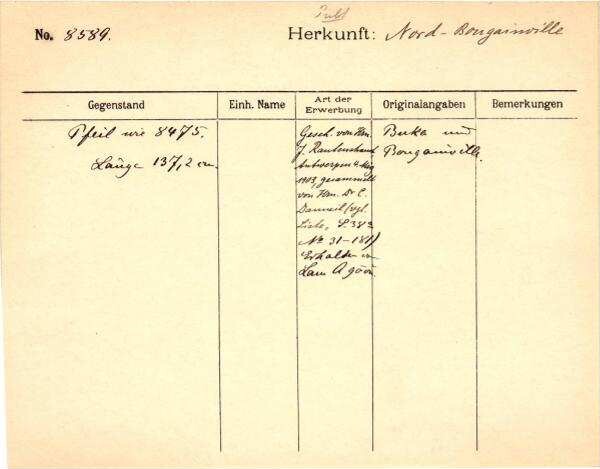 Publ
No. 8589.
Herkunft: Nord-Bougainville
Gegenstand
Einh. Name
Art der Erwerbung
Originalangaben
Bemerkungen
Pfeil wie 8475.
Länge 137,2 cm.
Gesch. von Hrn.
J. Rautenstrauch
Antwerpen
1903, gesammelt
von Hrn. Dr C.
Danneil (vgl.
Liste, S. 38
No 31-181)
Erhalten
Buka und
Bougainville.